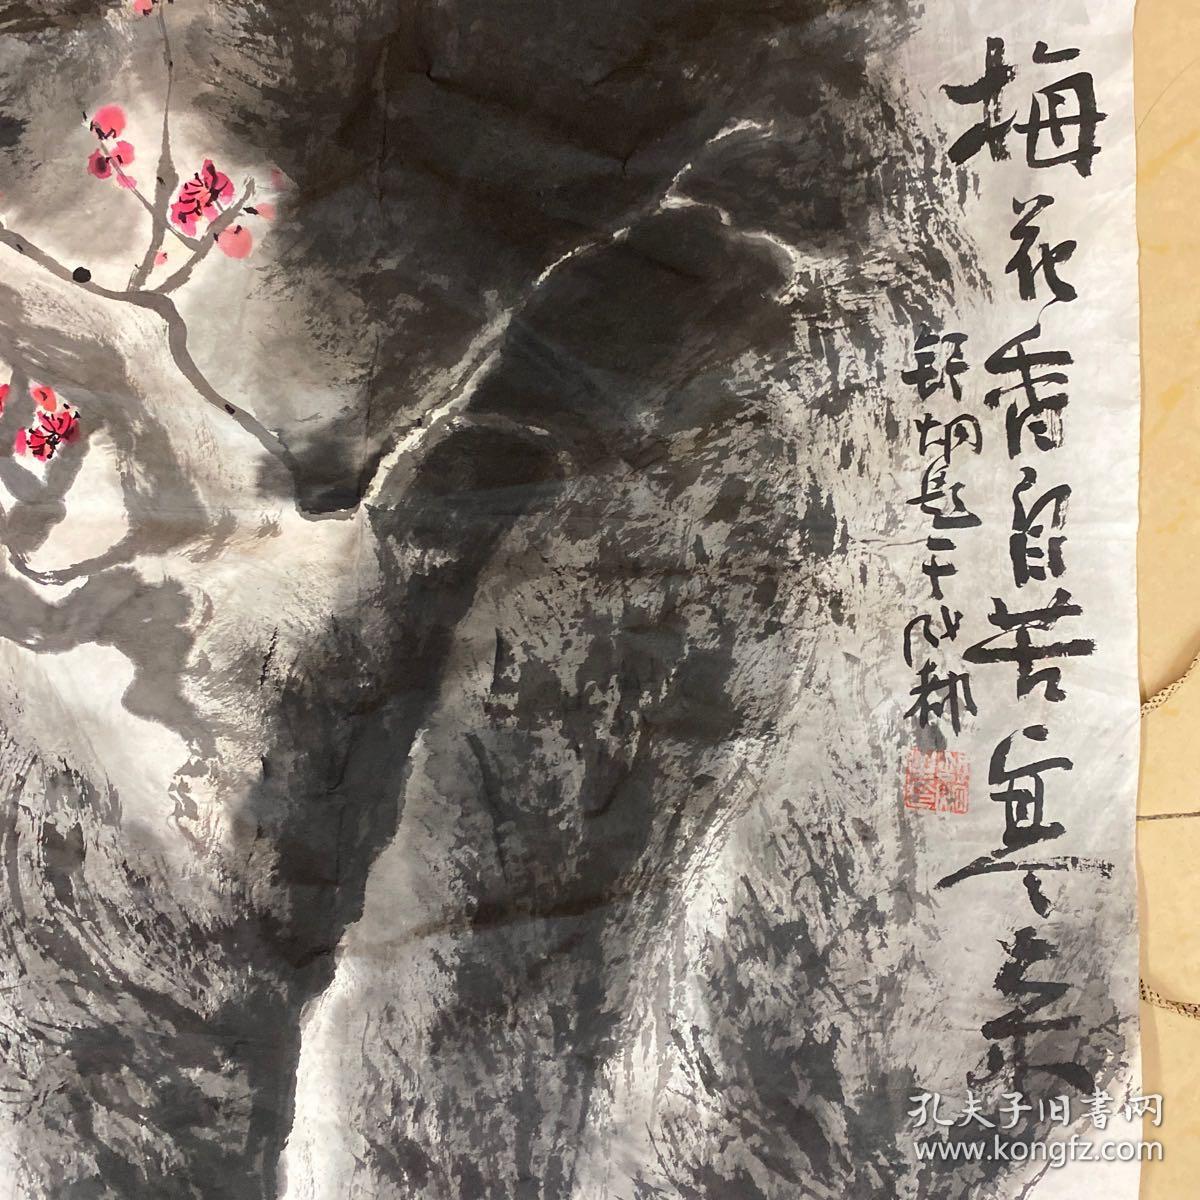 梅花香自苦寒来
题于成都
孔夫子旧書网
www.kongfz.com